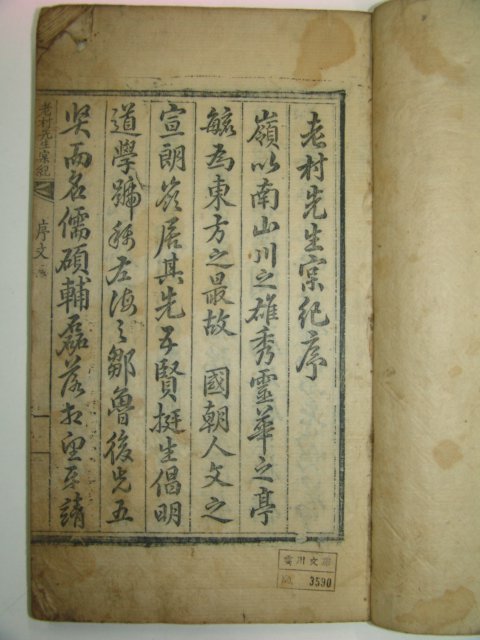 老村先生實紀序
嶺以南山川之雄秀靈華之亭
毓為東方之最故 國朝人文之
宣朗咨居其先五賢挺生倡明
道學號稱左海之鄒魯後先五
而名儒碩輔磊落相望于諸
老村先生實紀
序文
文庫
3590